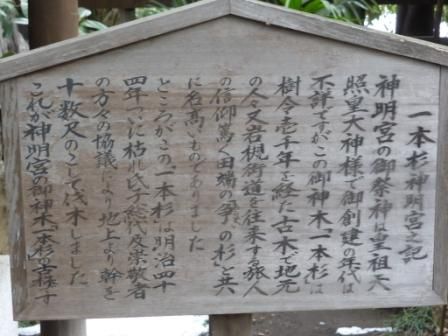 一本杉神明宮之記
神明宮の御祭神は皇祖天
照皇大神様で御創建の年代は
不詳ですがこの御神木「一本杉」は
樹令壱千年を経た古木で地元
の人々又岩槻街道を往来する旅人
の信仰篤く田端の「争いの杉」と共
に名高いものでありました
ところがこの一本杉は明治四十
四年ついに枯れ氏子総代及崇敬者
の方々の協議により地上より幹を
十数尺のこして伐木しました
これが神明宮の御神木一本杉の古株です